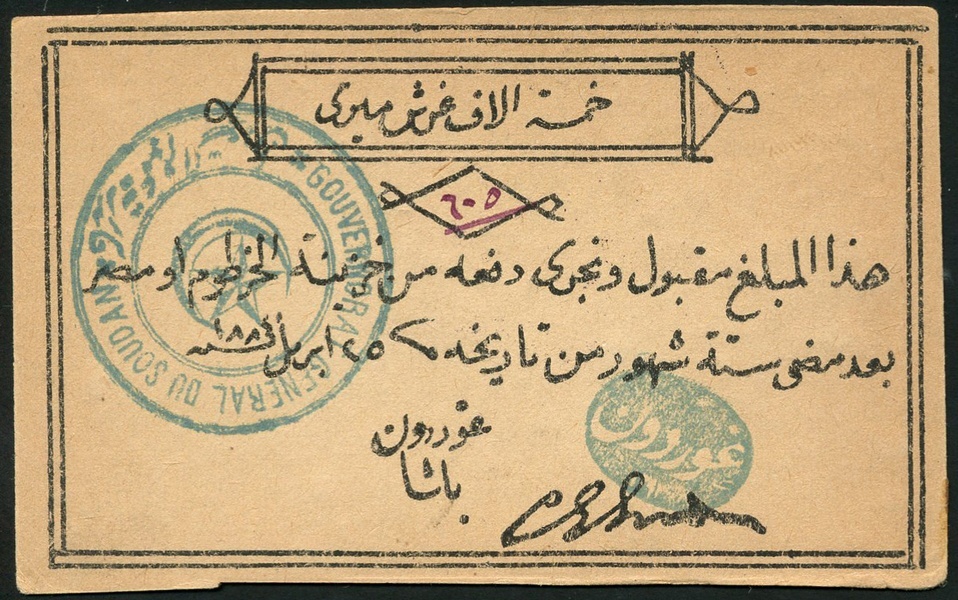 خمسة الاف غرش ميرى
٦٠٥
هذا المبلغ مقبول ونجرى دفعه من خزينة الخرطوم او مصر
بعد مضى ستة شهور من تاريخه ٢٥ ابريل سنة ١٨٨٤
غوردون
باشا
غوردون
GOUVERNORAT GENERAL DU SOUDAN